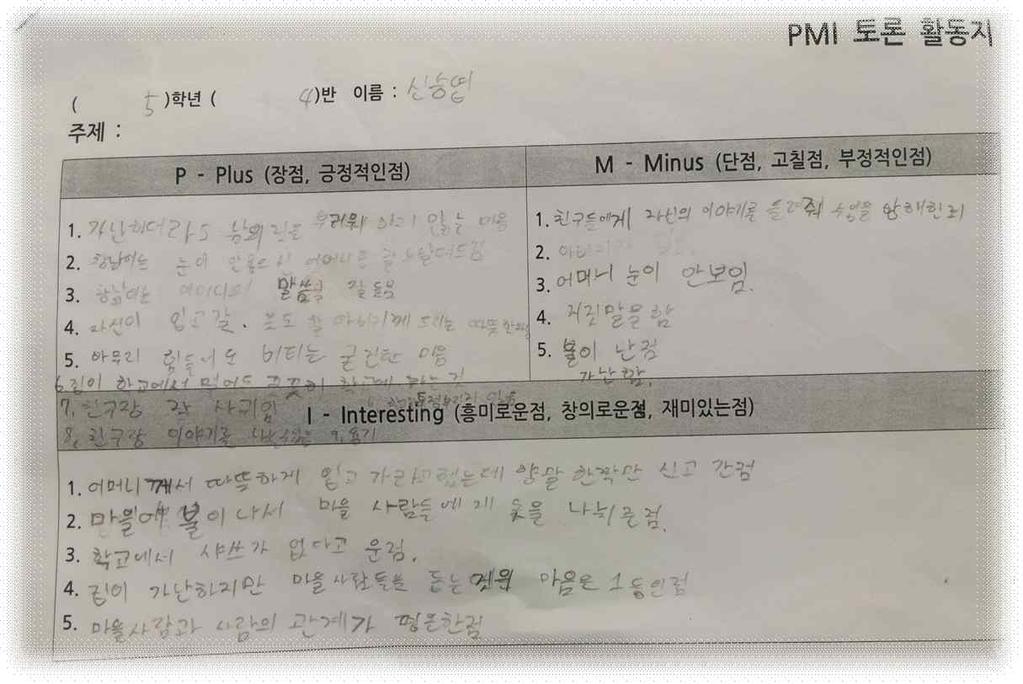 PMI 토론 활동지
( 5 )학년 ( 4 )반 이름 : 신승엽
주제 :
P - Plus (장점, 긍정적인점)
1. 가난하더라도 남의 것을 부러워 하지 않는 마음
2. 창남이는 눈이 안보이 어머니를
3. 창남이는 어머니의 말씀 잘 들음
4. 자신이 입고갈 옷도 아버지께 드리는
5. 아무리 힘들어도 버티는 굳건한 마음
6. 집이 학교에서 멀어도 꿋꿋이 학교에
7. 친구랑 잘 사귀임
8. 친구랑 이야기를 9. 용기
M - Minus (단점, 고칠점, 부정적인점)
1. 친구들에게 자신의 이야기를 들려줘 수업을 방해한죄
2.
3. 어머니 눈이 안보임.
4. 거짓말을 함
5. 불이 난점
가난함.
I - Interesting (흥미로운점, 창의로운점, 재미있는점)
1. 어머니께서 따뜻하게 입고 가라고했는데 양말 한짝만 신고 간점
2. 마을에 불이 나서 마을 사람들에게 옷을 나눠준점.
3. 학교에서 샤쓰가 없다고 운점.
4. 집이 가난하지만 마을사람들을 돕는 것위 마음은 1등인점
5. 마을사람과 사람의 관계가 평온한점